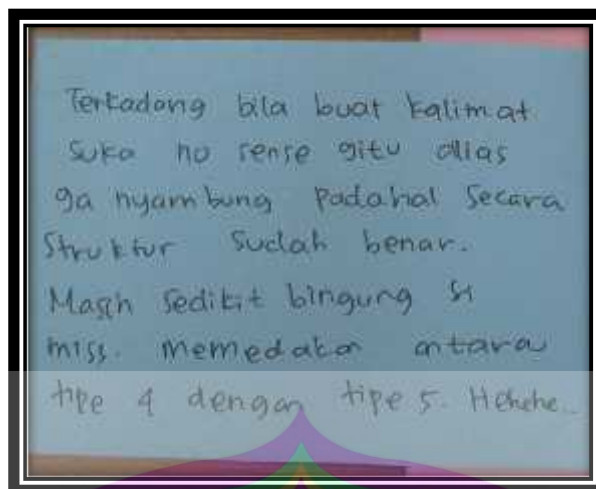 Terkadang bila buat kalimat
suka no sense gitu alias
ga nyambung padahal secara
struktur sudah benar.
Masih sedikit bingung si
miss. Memedakan antara
tipe 4 dengan tipe 5. Hehehe..